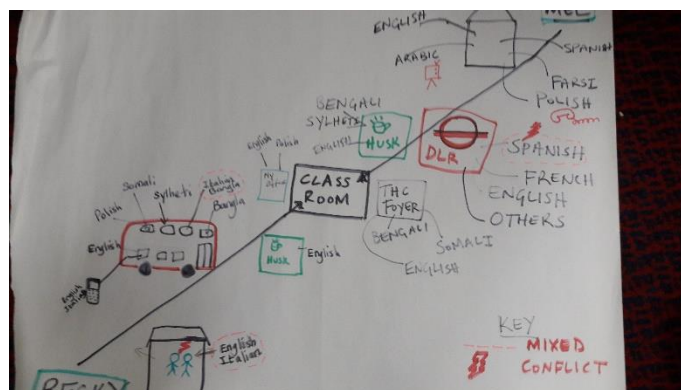 MEL
ENGLISH
ARABIC
SPANISH
FARSI
POLISH
BENGALI
SYLHETI
ENGLISH
HUSK
DLR
SPANISH
FRENCH
ENGLISH
OTHERS
English
Polish
My
office
CLASS
ROOM
THC
FOYER
BENGALI
SOMALI
ENGLISH
HUSK
English
Polish
Somali
Sylheti
Italian
Bangla
Bangla
English
English
English
Italian
BECKY
KEY
MIXED
CONFLICT